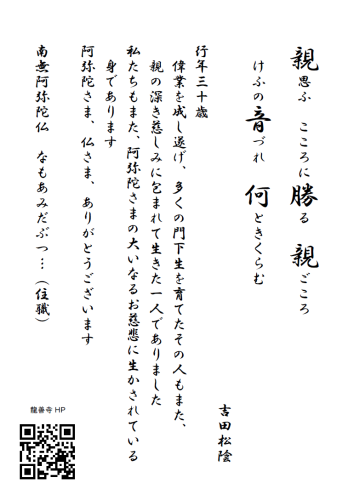 親思ふ　こころに勝る　親ごころ
けふの音づれ　何ときくらむ
吉田松陰
行年三十歳
偉業を成し遂げ、多くの門下生を育てたその人もまた、
親の深き慈しみに包まれて生きた一人でありました
私たちもまた、阿弥陀さまの大いなるお慈悲に生かされている
身であります
阿弥陀さま、仏さま、ありがとうございます
南無阿弥陀仏　なもあみだぶつ…（住職）
龍善寺 HP